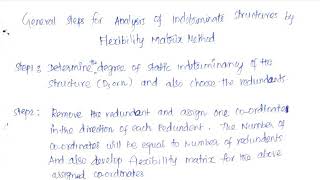 General Steps for Analysis of Indeterminate Structures by
Flexibility Matrix Method
Step 1: Determine the degree of static indeterminancy of the
structure (Ds or n) and also choose the redundants
Step 2: Remove the redundant and assign one co-ordinate
in the direction of each redundent. The Number of
co-ordinates will be equal to Number of redundents
And also develop flexibility matrix for the above
assigned co-ordinates